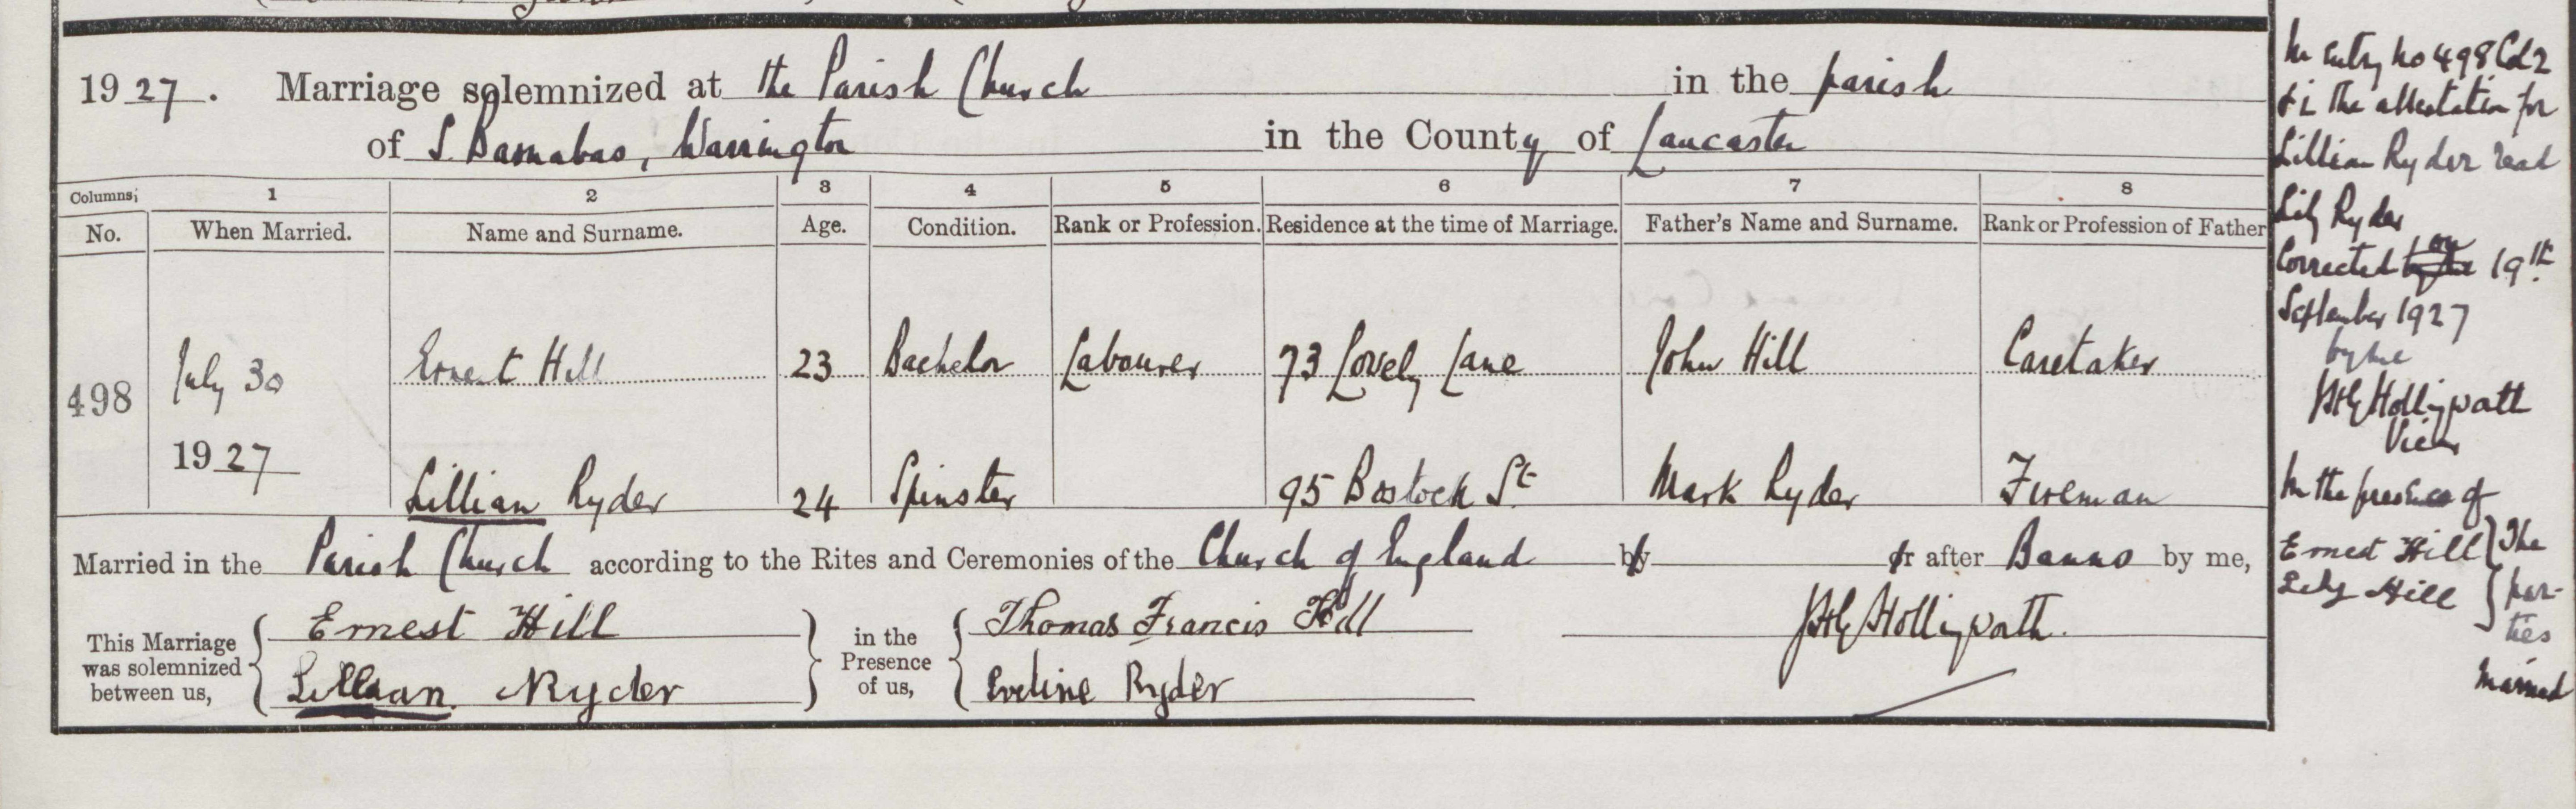 1927. Marriage solemnized at the Parish Church in the parish
of S. Barnabas, Warrington in the County of Lancaster
Columns; 1 2 3 4 5 6 7 8
No. When Married. Name and Surname. Age. Condition. Rank or Profession. Residence at the time of Marriage. Father's Name and Surname. Rank or Profession of Father
498 July 30 Ernest Hill 23 Bachelor Labourer 73 Lovely Lane John Hill Caretaker
1927 Lillian Ryder 24 Spinster 95 Bostock St. Mark Ryder Fireman
Married in the Parish Church according to the Rites and Ceremonies of the Church of England by or after Banns by me,
This Marriage was solemnized between us, Ernest Hill in the Presence of us, Thomas Francis Hill
Lillian Ryder Eveline Ryder
In entry no 498 Col 2
& in the attestation for
Lillian Ryder read
Lily Ryder
Corrected on 19th
September 1927
by me
Hollingworth
Vicar
In the presence of
Ernest Hill } The
Lily Hill } par-
ties
married